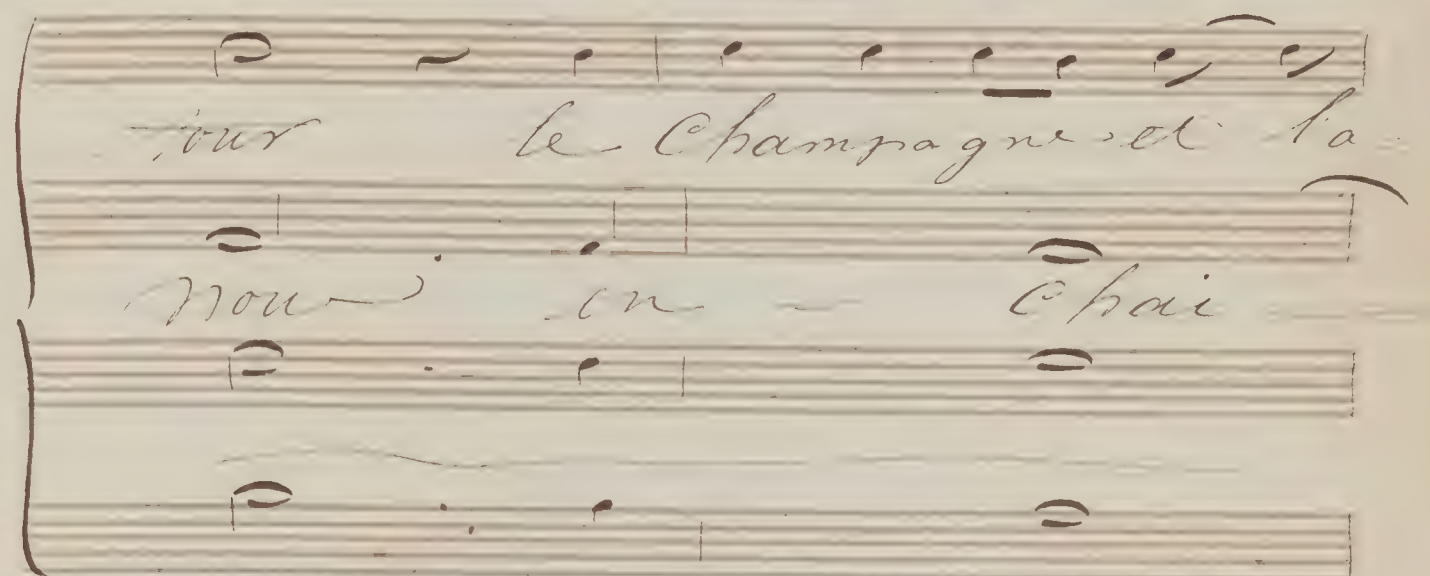 tour le Champagne et l'a
nous en - chai